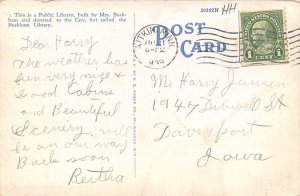 This is a Public Library, built by Mrs. Buck-
ham and donated to the City, but called the
Buckham Library.
30362N
HH
POST
CARD
AITKIN, MINN.
6-PM
1 CENT 1
Dear Harry
The weather has
been very nice &
Good Cabins
and Beautiful
Scenery. will
be on our way
Back soon
Bertha
Mr Harry Jansen
1947
Davenport
Iowa